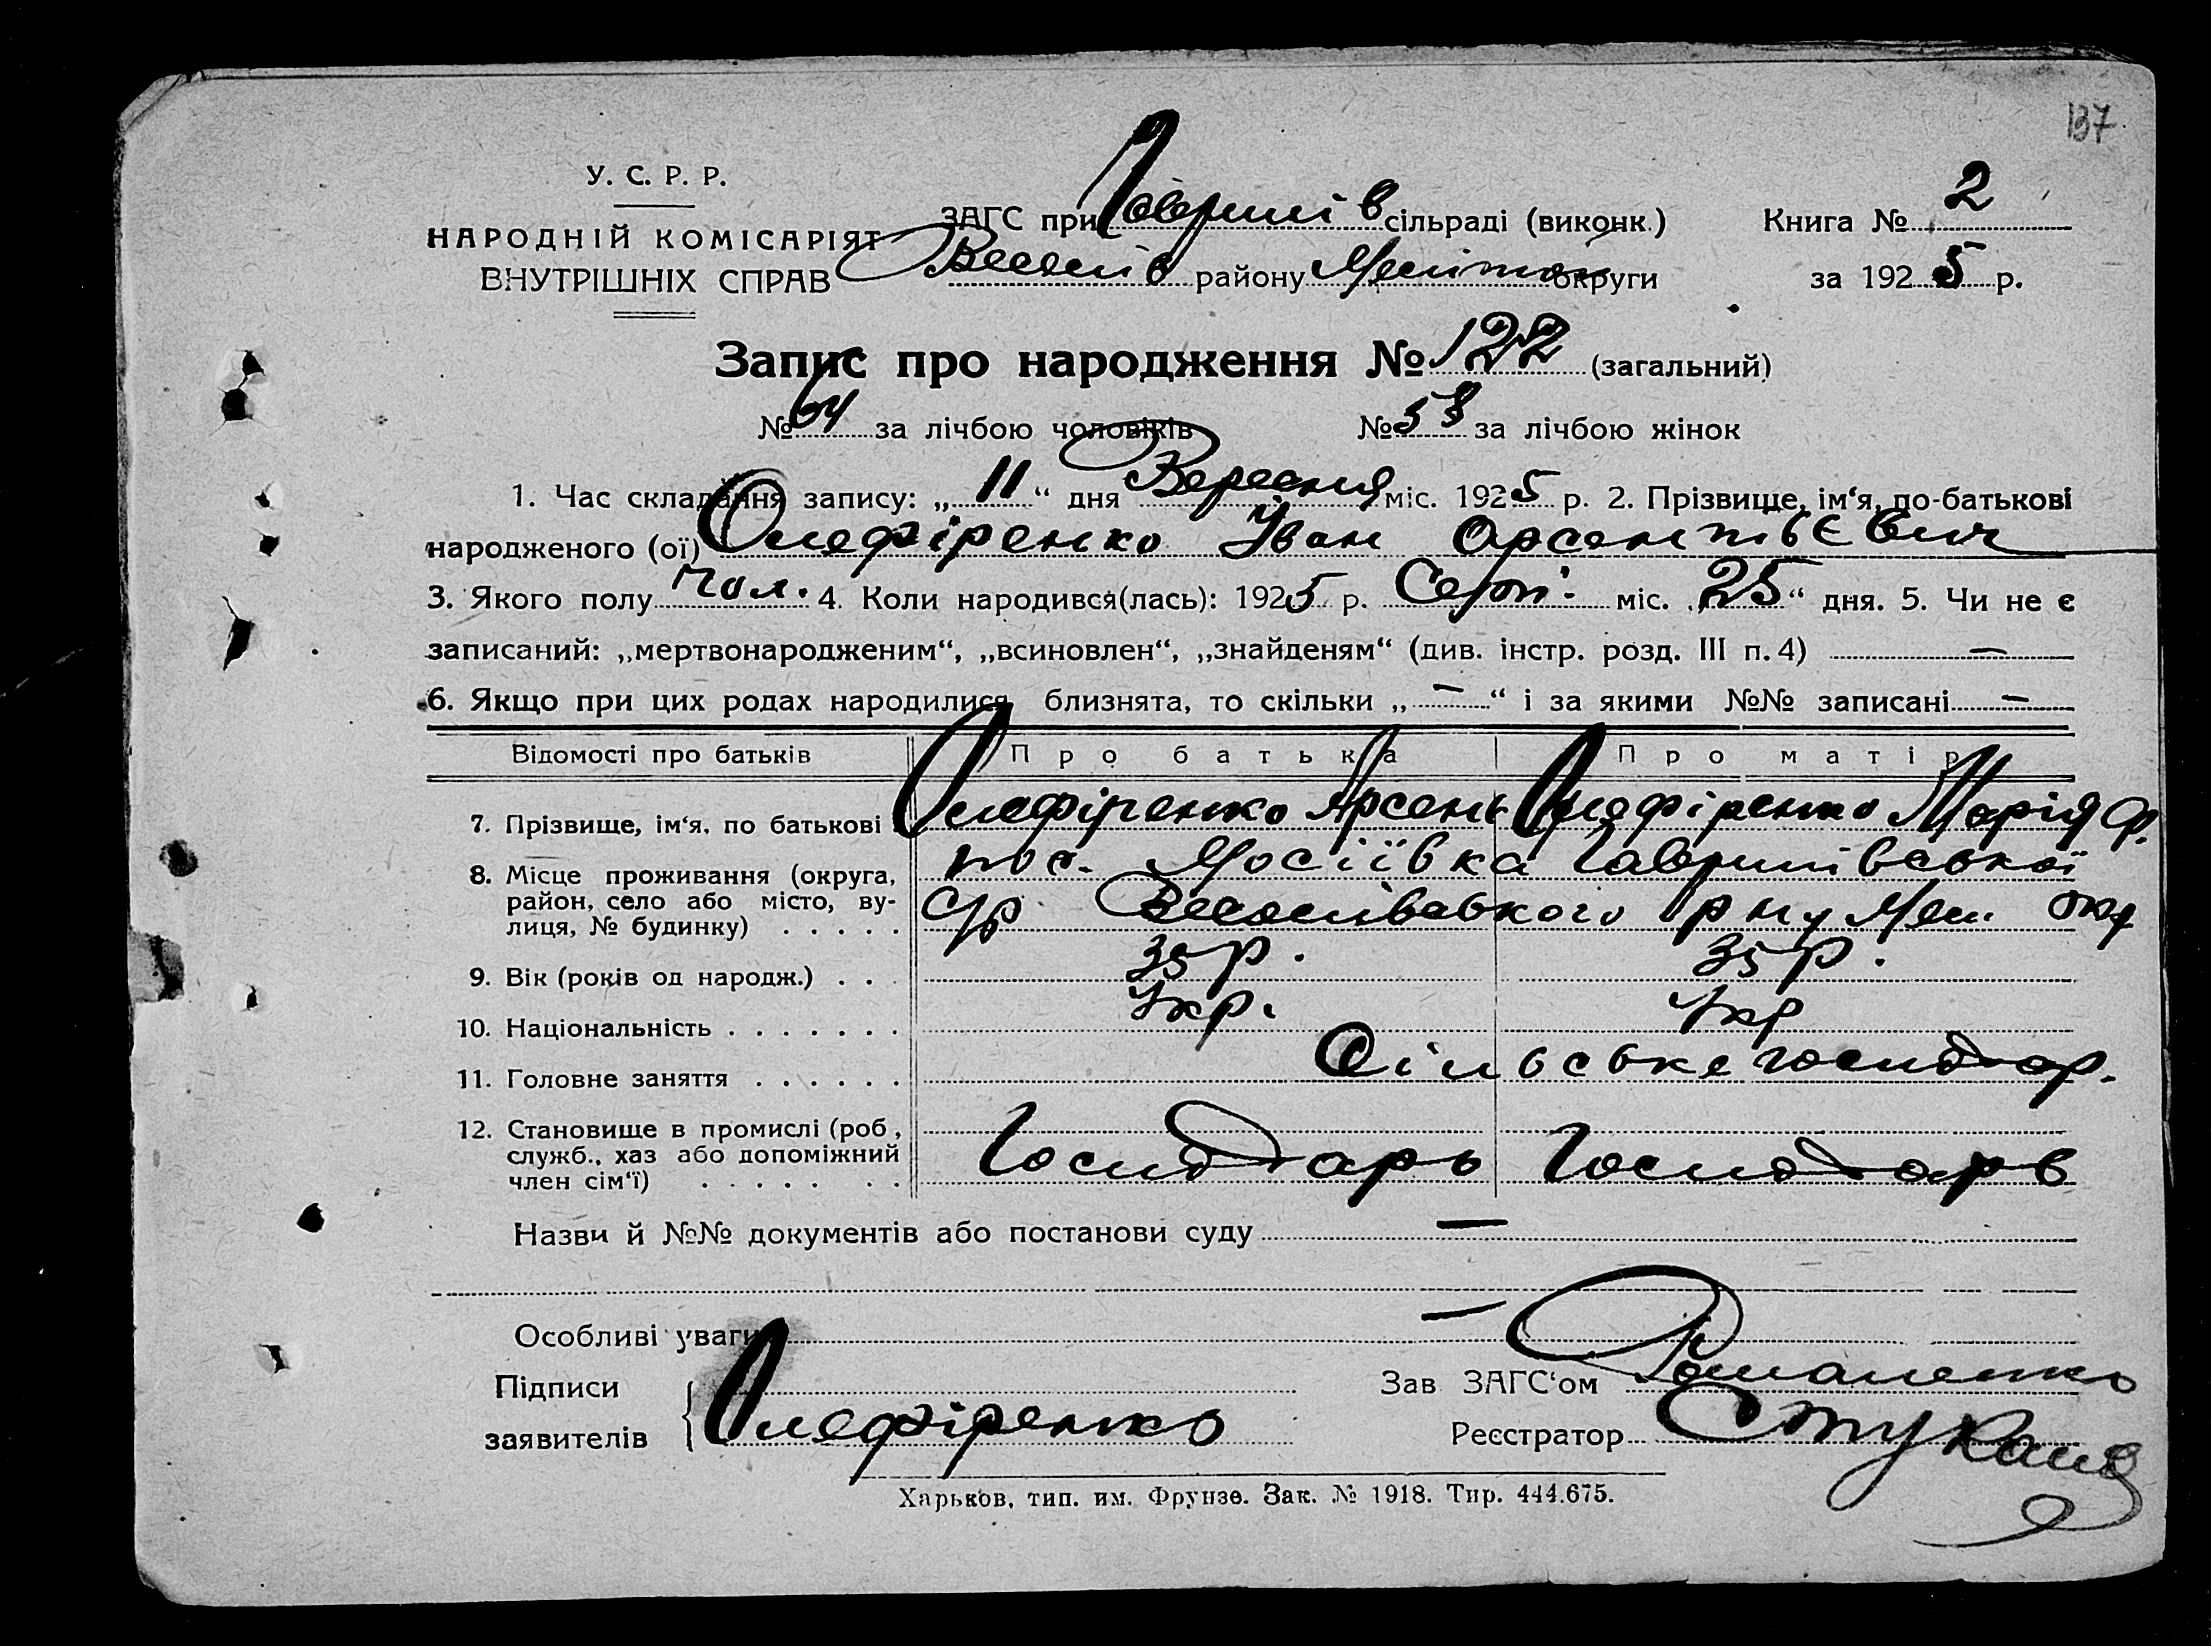 137
У. С. Р. Р.
НАРОДНІЙ КОМІСАРІЯТ
ВНУТРІШНІХ СПРАВ
ЗАГС при Гаврилів сільраді (виконк.)
Веселів району Меліток округи
Книга № 2
за 1925 р.
Запис про народження № 122 (загальний)
№ 64 за лічбою чоловіків № 58 за лічбою жінок
1. Час складання запису: „11“ дня Вересня міс. 1925 р. 2. Прізвище, ім‘я, по-батькові
народженого (ої) Олефіренко Іван Арсентьєвич
3. Якого полу чол. 4. Коли народився(лась): 1925 р. Серп. міс. „25“ дня. 5. Чи не є
записаний: „мертвонародженим“, „всиновлен“, „знайденям“ (див. інстр. розд. III п. 4) —
6. Якщо при цих родах народилися близнята, то скільки „—“ і за якими №№ записані —
Відомості про батьків Про батька Про матір
7. Прізвище, ім‘я, по батькові Олефіренко Арсень Олефіренко Марія Ф.
8. Місце проживання (округа, район, село або місто, вулиця, № будинку) . . . . . пос. Мосіївка Гаврилівської
с/р Веселівського р ну Мел. окр
9. Вік (років од народж.) . . 35 р. 35 р.
10. Національність . . . . . . . Укр. Укр
11. Головне заняття . . . . . . Сільське господар.
12. Становище в промислі (роб., служб., хаз або допоміжний член сім‘ї) . . . . . . . Господарь Господарь
Назви й №№ документів або постанови суду —
Особливі уваги —
Підписи
заявителів Олефіренко
Зав ЗАГС‘ом Романенко
Реєстратор
Харьков, тип. им. Фрунзе. Зак. № 1918. Тир. 444.675.